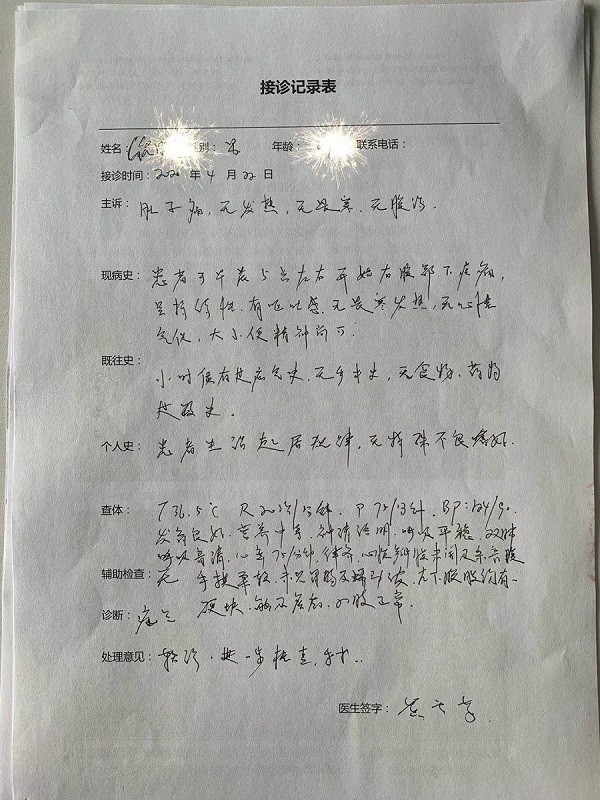 接诊记录表
姓名： 别： 男 年龄： 联系电话：
接诊时间：2020年4月22日
主诉：肚子痛，无发热，无畏寒，无腹泻.
现病史：患者于午夜5点左右开始右腹部下疼痛，
呈 性，有呕吐感，无畏寒发热，无心悸
气促，大小便精神尚可.
既往史：
小时侯有 气史，无手术史，无食物、药物
过敏史.
个人史：患者生活起居规律，无特殊不良嗜好.
查体：T36.5℃ R20次/分钟 P75/分钟 BP:124/90
发育良好，营养中等，神清语明，呼吸平稳，双肺
呼吸音清，心率75/分钟，律齐，心脏瓣膜未闻及杂音，腹
辅助检查：无 手按柔软，未见胃肠及蠕动波，右下腹股沟有一
硬块， 正常.
诊断：疝气
处理意见：转诊，进一步检查，手术.
医生签字：